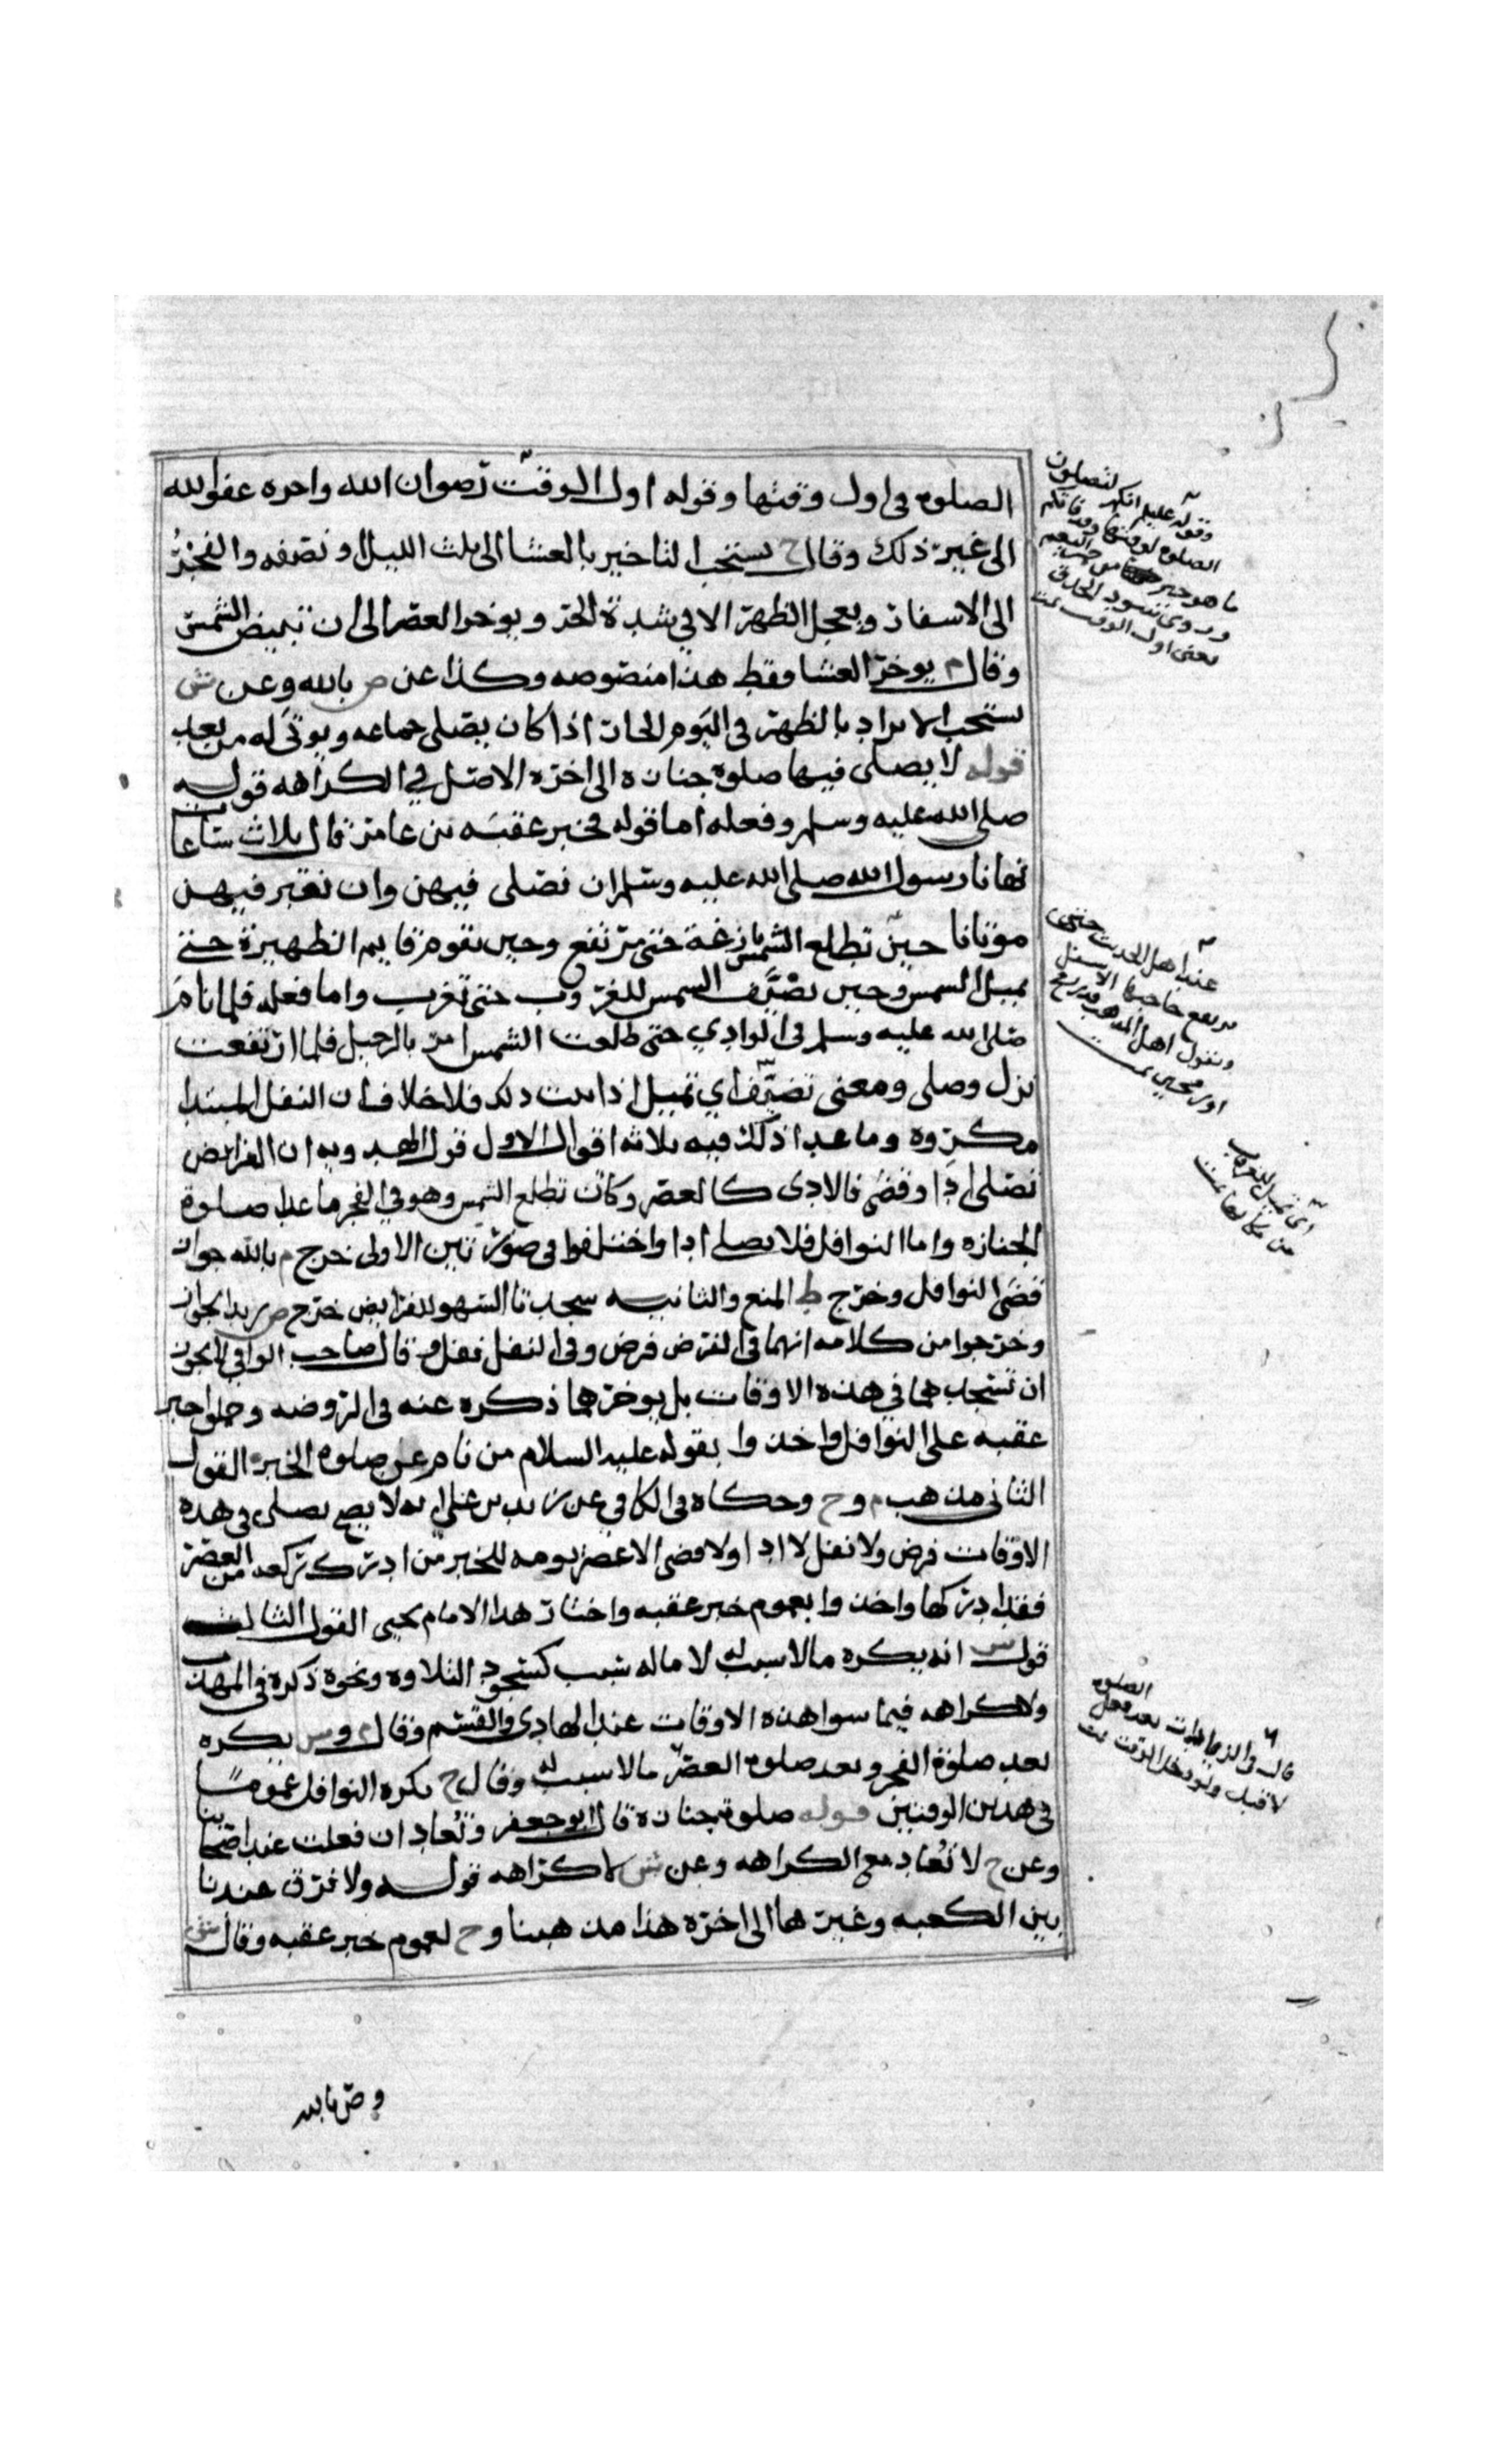 الصلوه في اول وقتها وقوله اول الوقت رضوان الله واخره عفو الله
الى غير ذلك وقال ح يستحب التاخير بالعشا الى ثلث الليل او نصفه والفجر
الى الاسفار ويعجل الظهر الا في شدة الحر ويوخر العصر الى ان تبيض الشمس
وقال م يوخر العشا فقط هذا منصوصه وكذا عن ص بالله وعن ش
يستحب الابراد بالظهر في اليوم الحار اذا كان يصلى جماعه ويوتى له من بعد
قوله لا يصلى فيها صلوة جنازه الى اخره الاصل في الكراهه قوله
صلى الله عليه وسلم وفعله اما قوله فخبر عقبه بن عامر قال ثلاث ساعات
نهانا رسول الله صلى الله عليه وسلم ان نصلى فيهن وان نقبر فيهن
موتانا حين تطلع الشمس بازغة حتى ترتفع وحين يقوم قايم الظهيرة حتى
تميل الشمس وحين تضيف الشمس للغروب حتى تغرب واما فعله فلما نام
صلى الله عليه وسلم في الوادي حتى طلعت الشمس امر بالرحيل فلما ارتفعت
نزل وصلى ومعنى تضيف اي تميل اذا ثبت ذلك فلا خلاف ان النفل المبتدا
مكروه وما عدا ذلك فيه ثلاثه اقوال الاول قول الهدويه ان الفرايض
تصلى اذا وقضى فالادى كالعصر وكان تطلع الشمس وهو في الفجر ما عدا صلوة
الجنازه واما النوافل فلا يصلى ادا واختلفوا في صورتين الاولى خرج م بالله جواز
قضى النوافل وخرج ط المنع والثانيه سجدتا السهو للفرايض خرج ص بالله الجواز
وخرجوا من كلامه انهما في الفرض فرض وفي النفل نفل وقال صاحب الوافي لا يجوز
ان تسجدهما في هذه الاوقات بل يوخرهما ذكره عنه في الروضه وحملوا خبر
عقبه على النوافل واخذوا بقوله عليه السلام من نام عن صلوه الخبر القول
الثاني مذهب م وح وحكاه في الكافي عن زيد بن علي انه لا يصح يصلى في هذه
الاوقات فرض ولا نفل لا ادا ولا قضى الا عصر يومه للخبر من ادرك ركعه من العصر
فقد ادركها واخذوا بعموم خبر عقبه واختار هذا الامام يحيى القول الثالث
قول ش انه يكره ما لا سبب له لا ما له سبب كسجود التلاوه ونحوه ذكره في المهذب
ولا كراهه فيما سوا هذه الاوقات عند الهادي والقسم وقال م وش يكره
بعد صلوة الفجر وبعد صلوة العصر ما لا سبب له وقال ح يكره النوافل عموما
في هذين الوقتين قوله صلوة جنازه قال ابو جعفر وتعاد ان فعلت عند اصحابنا
وعن ح لا تعاد مع الكراهه وعن ش لا كراهه قوله ولا فرق عندنا
بين الكعبه وغيرها الى اخره هذا مذهبنا وح لعموم خبر عقبه وقال ش
وص بالله
وقوله عليلم انكم لتصلون
الصلوه لوقتها وقد فاتكم
ما هو خير من حمر النعم
يعنى اول الوقت تمت
عند اهل الحديث حتى
يرتفع حاجبها الاسفل
ونقول اهل المذهب قدر رمح
او رمحين تمت
اى تميل للغروب
من مكانها تمت
قال في الزيادات بعد فعل الصلوه
لا قبل ولو دخل الوقت تمت